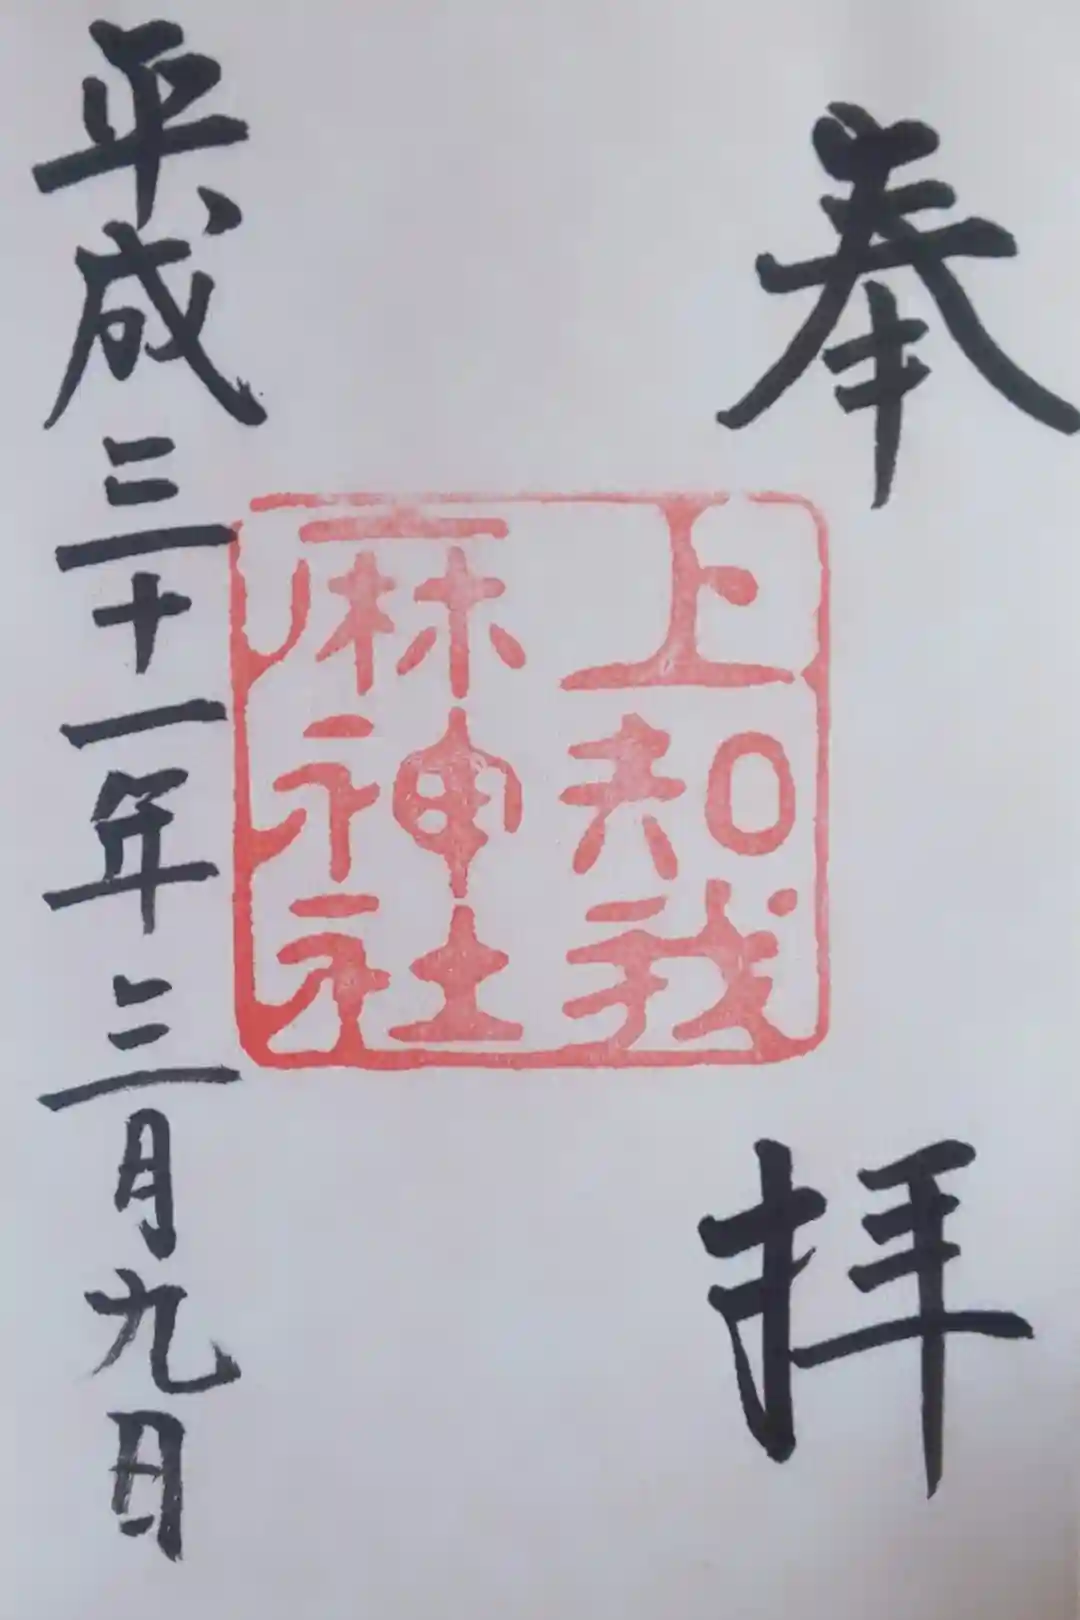 奉拝
上知我
麻神社
平成三十一年三月九日